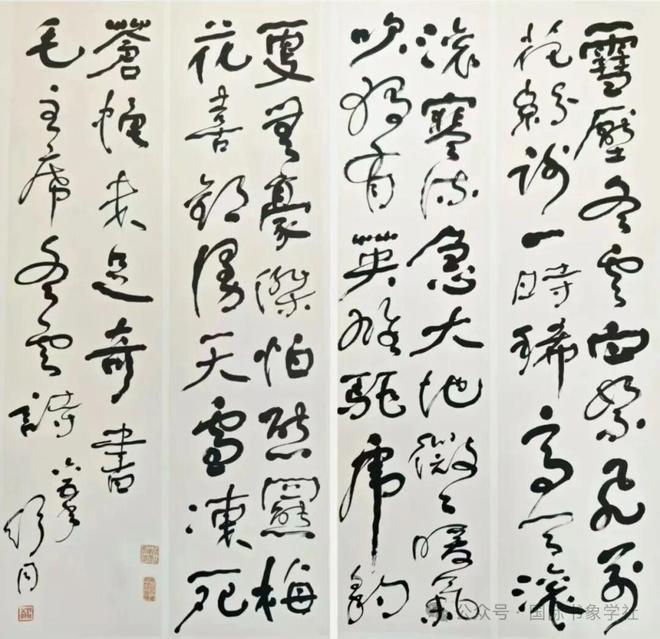 雪壓冬雲白絮飛萬
花紛謝一時稀高天滾
滾寒流急大地微々暖氣
吹獨有英雄驅虎豹
更無豪傑怕熊羆梅
花喜歡漫天雪凍死
蒼蠅未足奇書
毛主席冬雲詩
舒同
公众号·国际书象学社